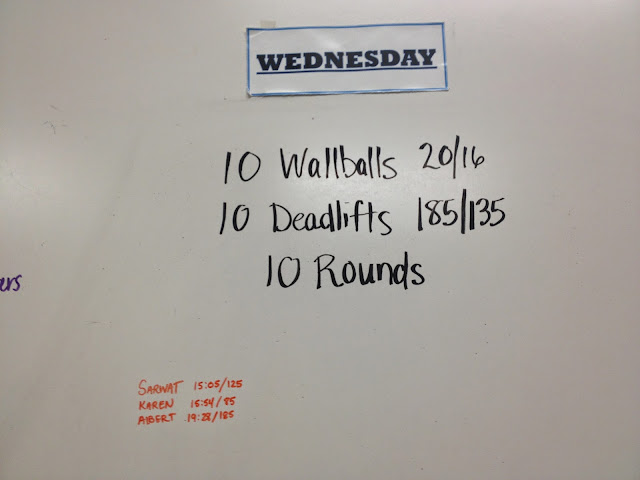 WEDNESDAY
10 Wallballs 20/16
10 Deadlifts 185/135
10 Rounds
ers
SARWAT 15:05/125
KAREN 15:54/85
AlBERT 19:28/185